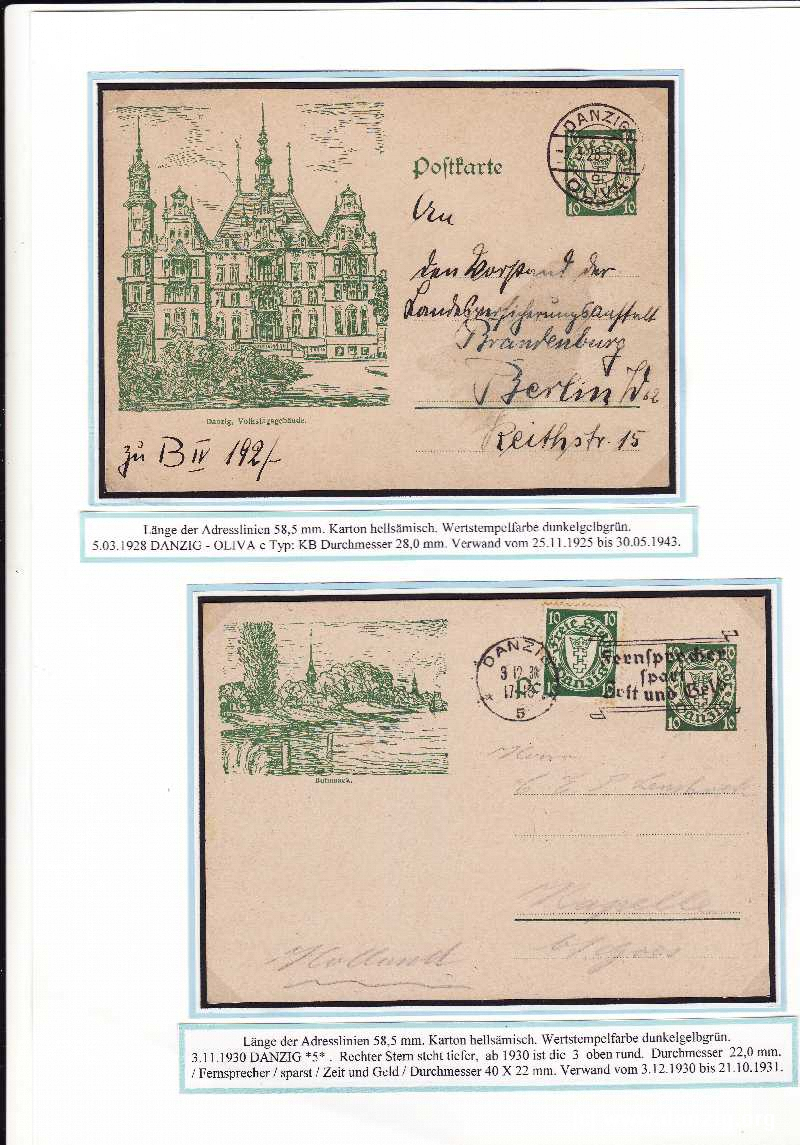 DANZIG
OLIVA
10 10
Postkarte
An
den Vorstand der
Landesversicherungsanstalt
Brandenburg
Berlin W 62
Keithstr. 15
Danzig, Volkstagsgebäude.
zu B IV 192/
Länge der Adresslinien 58,5 mm. Karton hellsämisch. Wertstempelfarbe dunkelgelbgrün.
5.03.1928 DANZIG - OLIVA c Typ: KB Durchmesser 28,0 mm. Verwand vom 25.11.1925 bis 30.05.1943.
10 10
Freie Stadt
Danzig
DANZIG
5
Fernsprecher
spart
Zeit und Geld
10 10
Danzig
Bohnsack.
Herrn
Kapelle
b/Goes
Holland
Länge der Adresslinien 58,5 mm. Karton hellsämisch. Wertstempelfarbe dunkelgelbgrün.
3.11.1930 DANZIG *5* . Rechter Stern steht tiefer, ab 1930 ist die 3 oben rund. Durchmesser 22,0 mm.
/ Fernsprecher / sparst / Zeit und Geld / Durchmesser 40 X 22 mm. Verwand vom 3.12.1930 bis 21.10.1931.